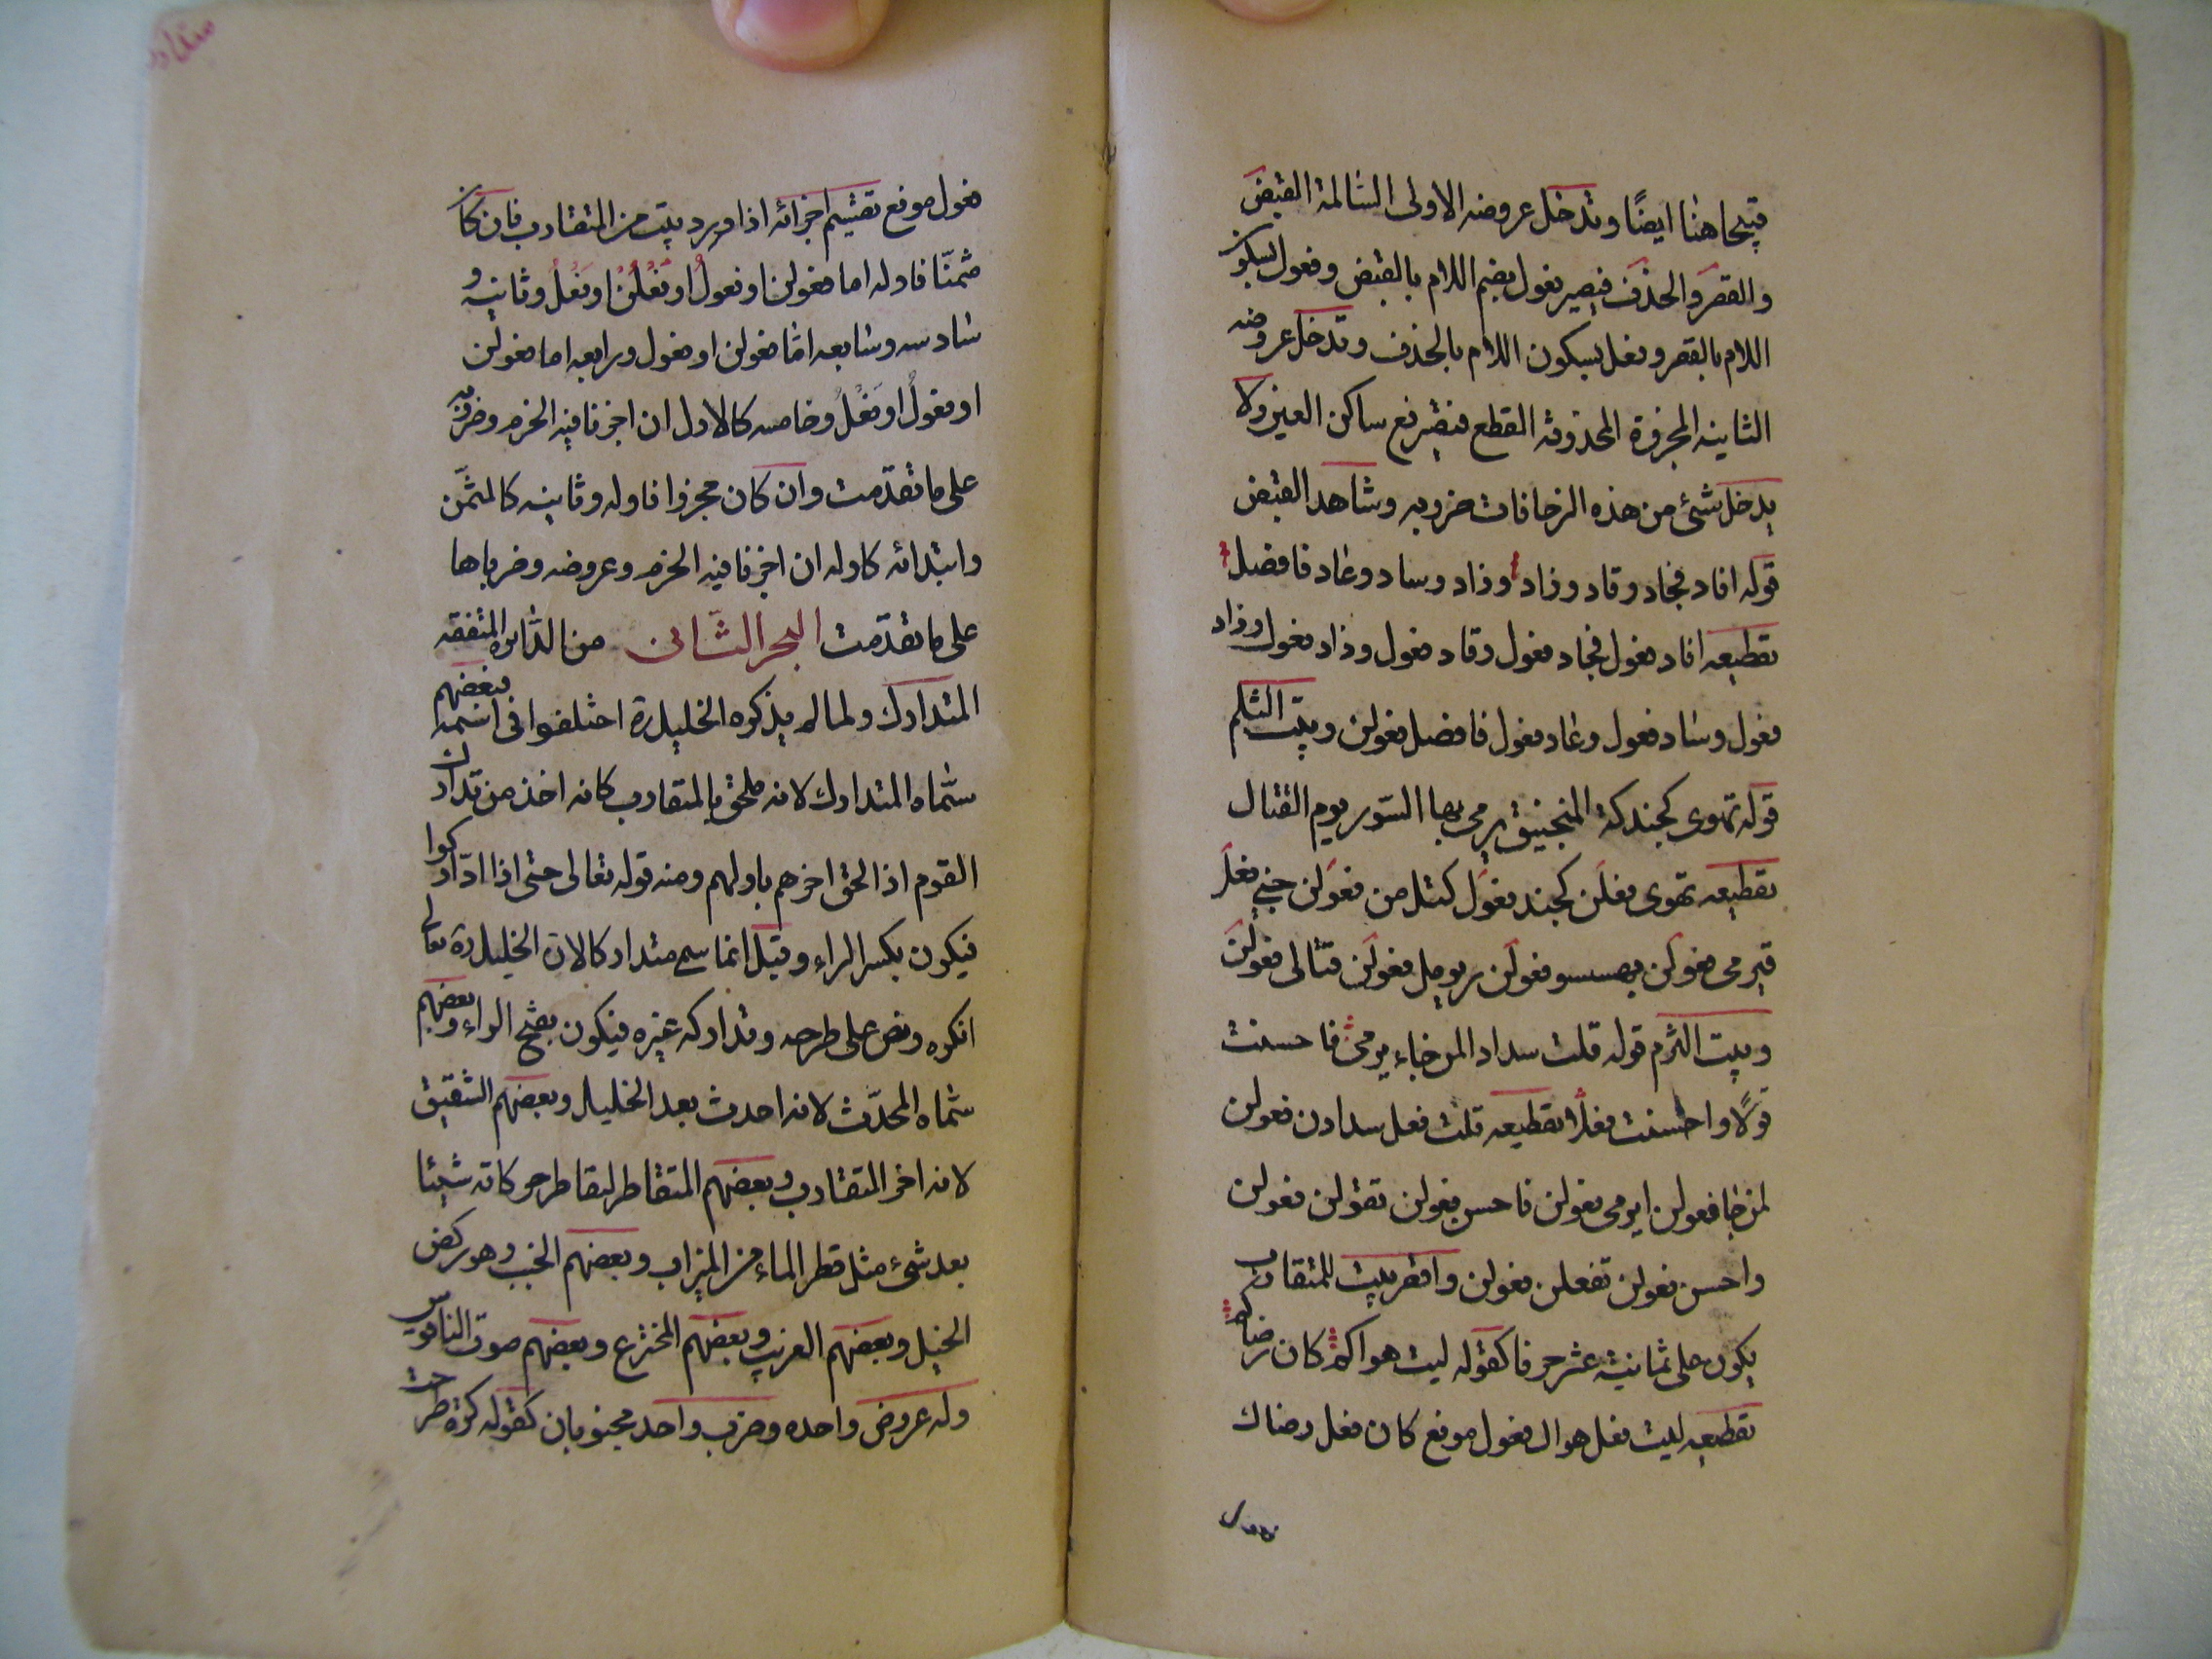 قبيحا هنا ايضًا وتدخل عروضه الاولى السالمة القبض
والقصر والحذف فيصير فعول بضم اللام بالقبض وفعول بسكون
اللام بالقصر وفعل بسكون اللام بالحذف وتدخل عروضه
الثانيه المجزوة المحذوفه القطع فتصير فع ساكن العين ولا
يدخل شئ من هذه الزحافات ضروبه وشاهد القبض
قوله افاد فجاد وقاد وزاد وذاد وساد وعاد فافضل
تقطيعه افاد فعول فجاد فعول وقاد فعول وذاد فعول وزاد
فعول وساد فعول وعاد فعول فافضل فعولن وبيت الثلم
قوله تهوى كجندلة المنجنيق يرمى بها السّور يوم القتال
تقطيعه تهوى فعلن كجند فعول لتل من فعولن جني فعل
قيرمى فعولن بهسسو فعولن ريومل فعولن قتالى فعولن
وبيت الثرم قوله قلت سداد المن جاء يرمى فاحسنت
قولًا واحسنت فعلًا تقطيعه قلت فعل سدادن فعولن
لمن جا فعولن ايرمى فعولن فاحسن فعولن تقولن فعولن
واحسن فعولن تفعلن فعولن واقصر بيت للمتقارب
يكون على ثمانية عشر حرفا كقوله ليت هواك كان رضاك
تقطيعه ليت فعل هواك فعول موقع كان فعل رضاك
فعول
فعول موقع تقسيم اجزائه اذا ورد بيت من المتقارب فان كان
مثمنّا فاوله اما فعولن او فعولُ او فَعْلُنْ او فَعْلُ وثانيه و
سادسه وسابعه امّا فعولن او فعول ورابعه اما فعولن
او فعولُ او فَعْلُ وخامسه كالاول ان اجزنا فيه الخرم وضربه
على ما تقدّمت وان كان مجزوا فاوله وثانيه كالمثمّن
وابتدائه كاوله ان اجزنا فيه الخرم وعروضه وضرباها
على ما تقدّمت البحر الثّانى من الدّائره المتفقه
المتدارك ولما لم يذكره الخليل ره اختلفوا فى اسمه فبعضهم
سمّاه المتدارك لانه ملحق بالمتقارب كانه اخذ من تدارك
القوم اذا لحق اخرهم باولهم ومنه قوله تعالى حتى اذا ادّاركوا
فيكون بكسر الراء وقيل انما سمى متداركا لان الخليل ره تعالى
انكره ونص على طرحه وتداركه غيره فيكون بفتح الراء وبعضهم
سمّاه المحدّث لانه احدث بعد الخليل وبعضهم الشقيق
لانه اخو المتقارب وبعضهم المتقاطر لتقاطر حركاته شيئا
بعد شئ مثل قطر الماء من الميزاب وبعضهم الخبب وهو ركض
الخيل وبعضهم الغريب وبعضهم المخترع وبعضهم صوت الناقوس
وله عروض واحده وضرب واحد مخبونان كقوله كرة طرحت